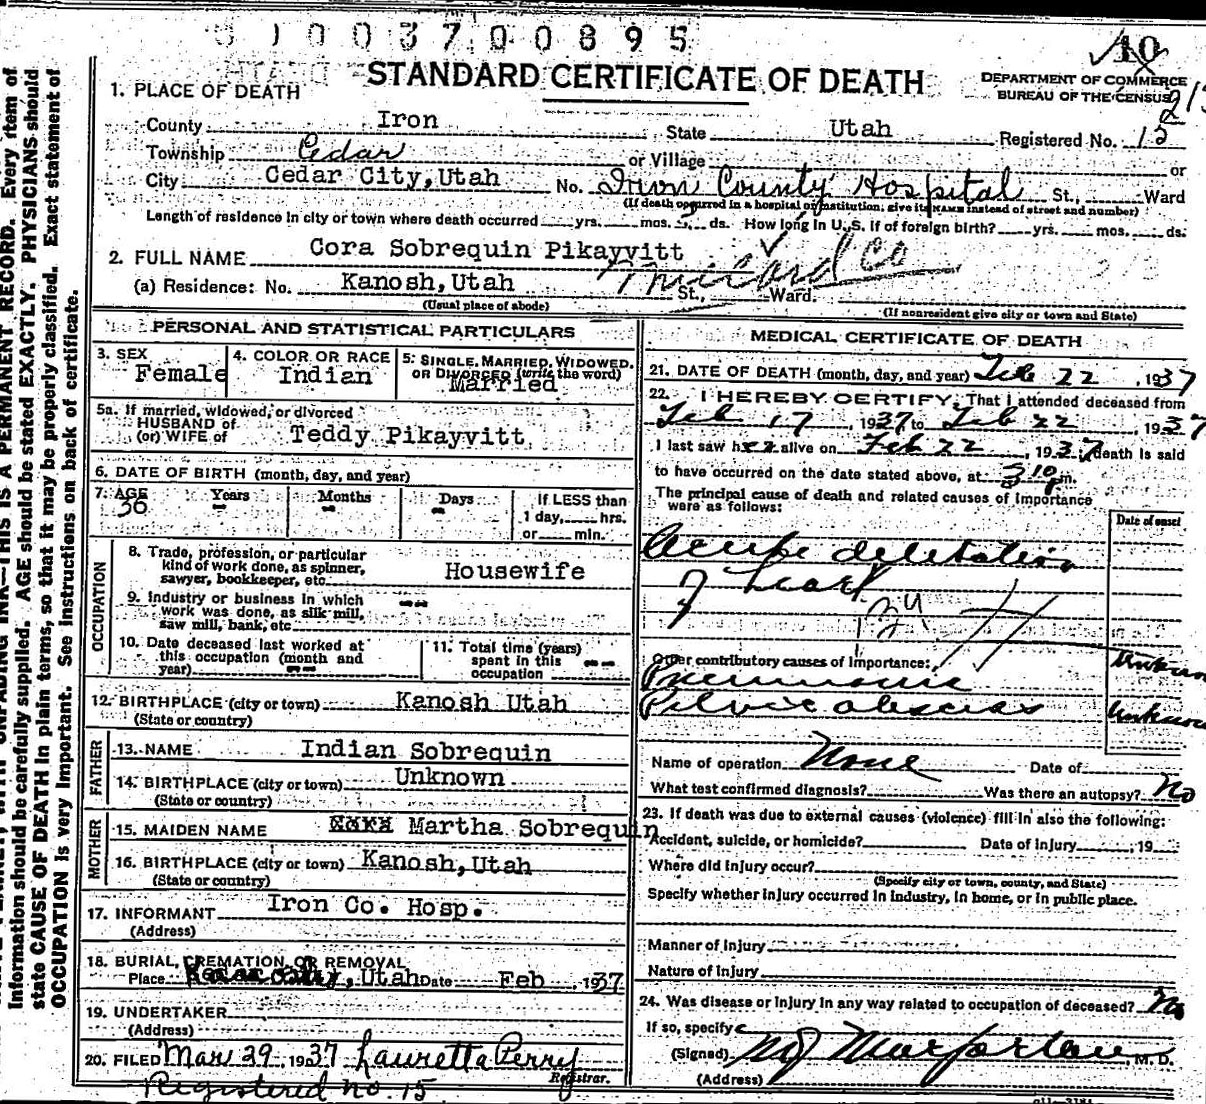 S 1 0 0 3 7 0 0 8 9 5
10
STANDARD CERTIFICATE OF DEATH
DEPARTMENT OF COMMERCE
BUREAU OF THE CENSUS
1. PLACE OF DEATH
County Iron State Utah Registered No. 15
Township Cedar or Village or
City Cedar City, Utah No. Iron County Hospital St., Ward
(If death occurred in a hospital or institution, give its NAME instead of street and number)
Length of residence in city or town where death occurred yrs. mos. 5 ds. How long in U. S. if of foreign birth? yrs. mos. ds.
2. FULL NAME Cora Sobrequin Pikayvitt
Millard Co
(a) Residence: No. Kanosh, Utah St., Ward.
(Usual place of abode) (If nonresident give city or town and State)
PERSONAL AND STATISTICAL PARTICULARS
3. SEX Female
4. COLOR OR RACE Indian
5. SINGLE, MARRIED, WIDOWED, OR DIVORCED (write the word) Married
5a. If married, widowed, or divorced
HUSBAND of
(or) WIFE of Teddy Pikayvitt
6. DATE OF BIRTH (month, day, and year)
7. AGE Years Months Days If LESS than
36 - - - 1 day, hrs.
or min.
OCCUPATION
8. Trade, profession, or particular
kind of work done, as spinner,
sawyer, bookkeeper, etc. Housewife
9. Industry or business in which
work was done, as silk mill,
saw mill, bank, etc. --
10. Date deceased last worked at
this occupation (month and
year) --
11. Total time (years)
spent in this
occupation --
12. BIRTHPLACE (city or town) Kanosh Utah
(State or country)
FATHER
13. NAME Indian Sobrequin
14. BIRTHPLACE (city or town) Unknown
(State or country)
MOTHER
15. MAIDEN NAME Martha Sobrequin
16. BIRTHPLACE (city or town) Kanosh, Utah
(State or country)
17. INFORMANT Iron Co. Hosp.
(Address)
18. BURIAL, CREMATION, OR REMOVAL
Place , Utah Date Feb , 1937
19. UNDERTAKER
(Address)
20. FILED Mar 29, 1937 Lauretta Perry
Registrar.
Registered no. 15
MEDICAL CERTIFICATE OF DEATH
21. DATE OF DEATH (month, day, and year) Feb 22, 1937
22. I HEREBY CERTIFY, That I attended deceased from
Feb 17, 1937 to Feb 22, 1937
I last saw her alive on Feb 22, 1937, death is said
to have occurred on the date stated above, at 3 10 p m.
The principal cause of death and related causes of importance
were as follows:
Date of onset
Acute diletation
of heart
Other contributory causes of importance:
Pneumonia Unknown
Pelvic abscess Unknown
Name of operation None Date of
What test confirmed diagnosis? Was there an autopsy? No
23. If death was due to external causes (violence) fill in also the following:
Accident, suicide, or homicide? Date of injury , 19
Where did injury occur?
(Specify city or town, county, and State)
Specify whether injury occurred in industry, in home, or in public place.
Manner of injury
Nature of injury
24. Was disease or injury in any way related to occupation of deceased? No
If so, specify
(Signed) , M. D.
(Address)
THIS IS A PERMANENT RECORD. Every item of
information should be carefully supplied. AGE should be stated EXACTLY. PHYSICIANS should
state CAUSE OF DEATH in plain terms, so that it may be properly classified. Exact statement of
OCCUPATION is very important. See instructions on back of certificate.